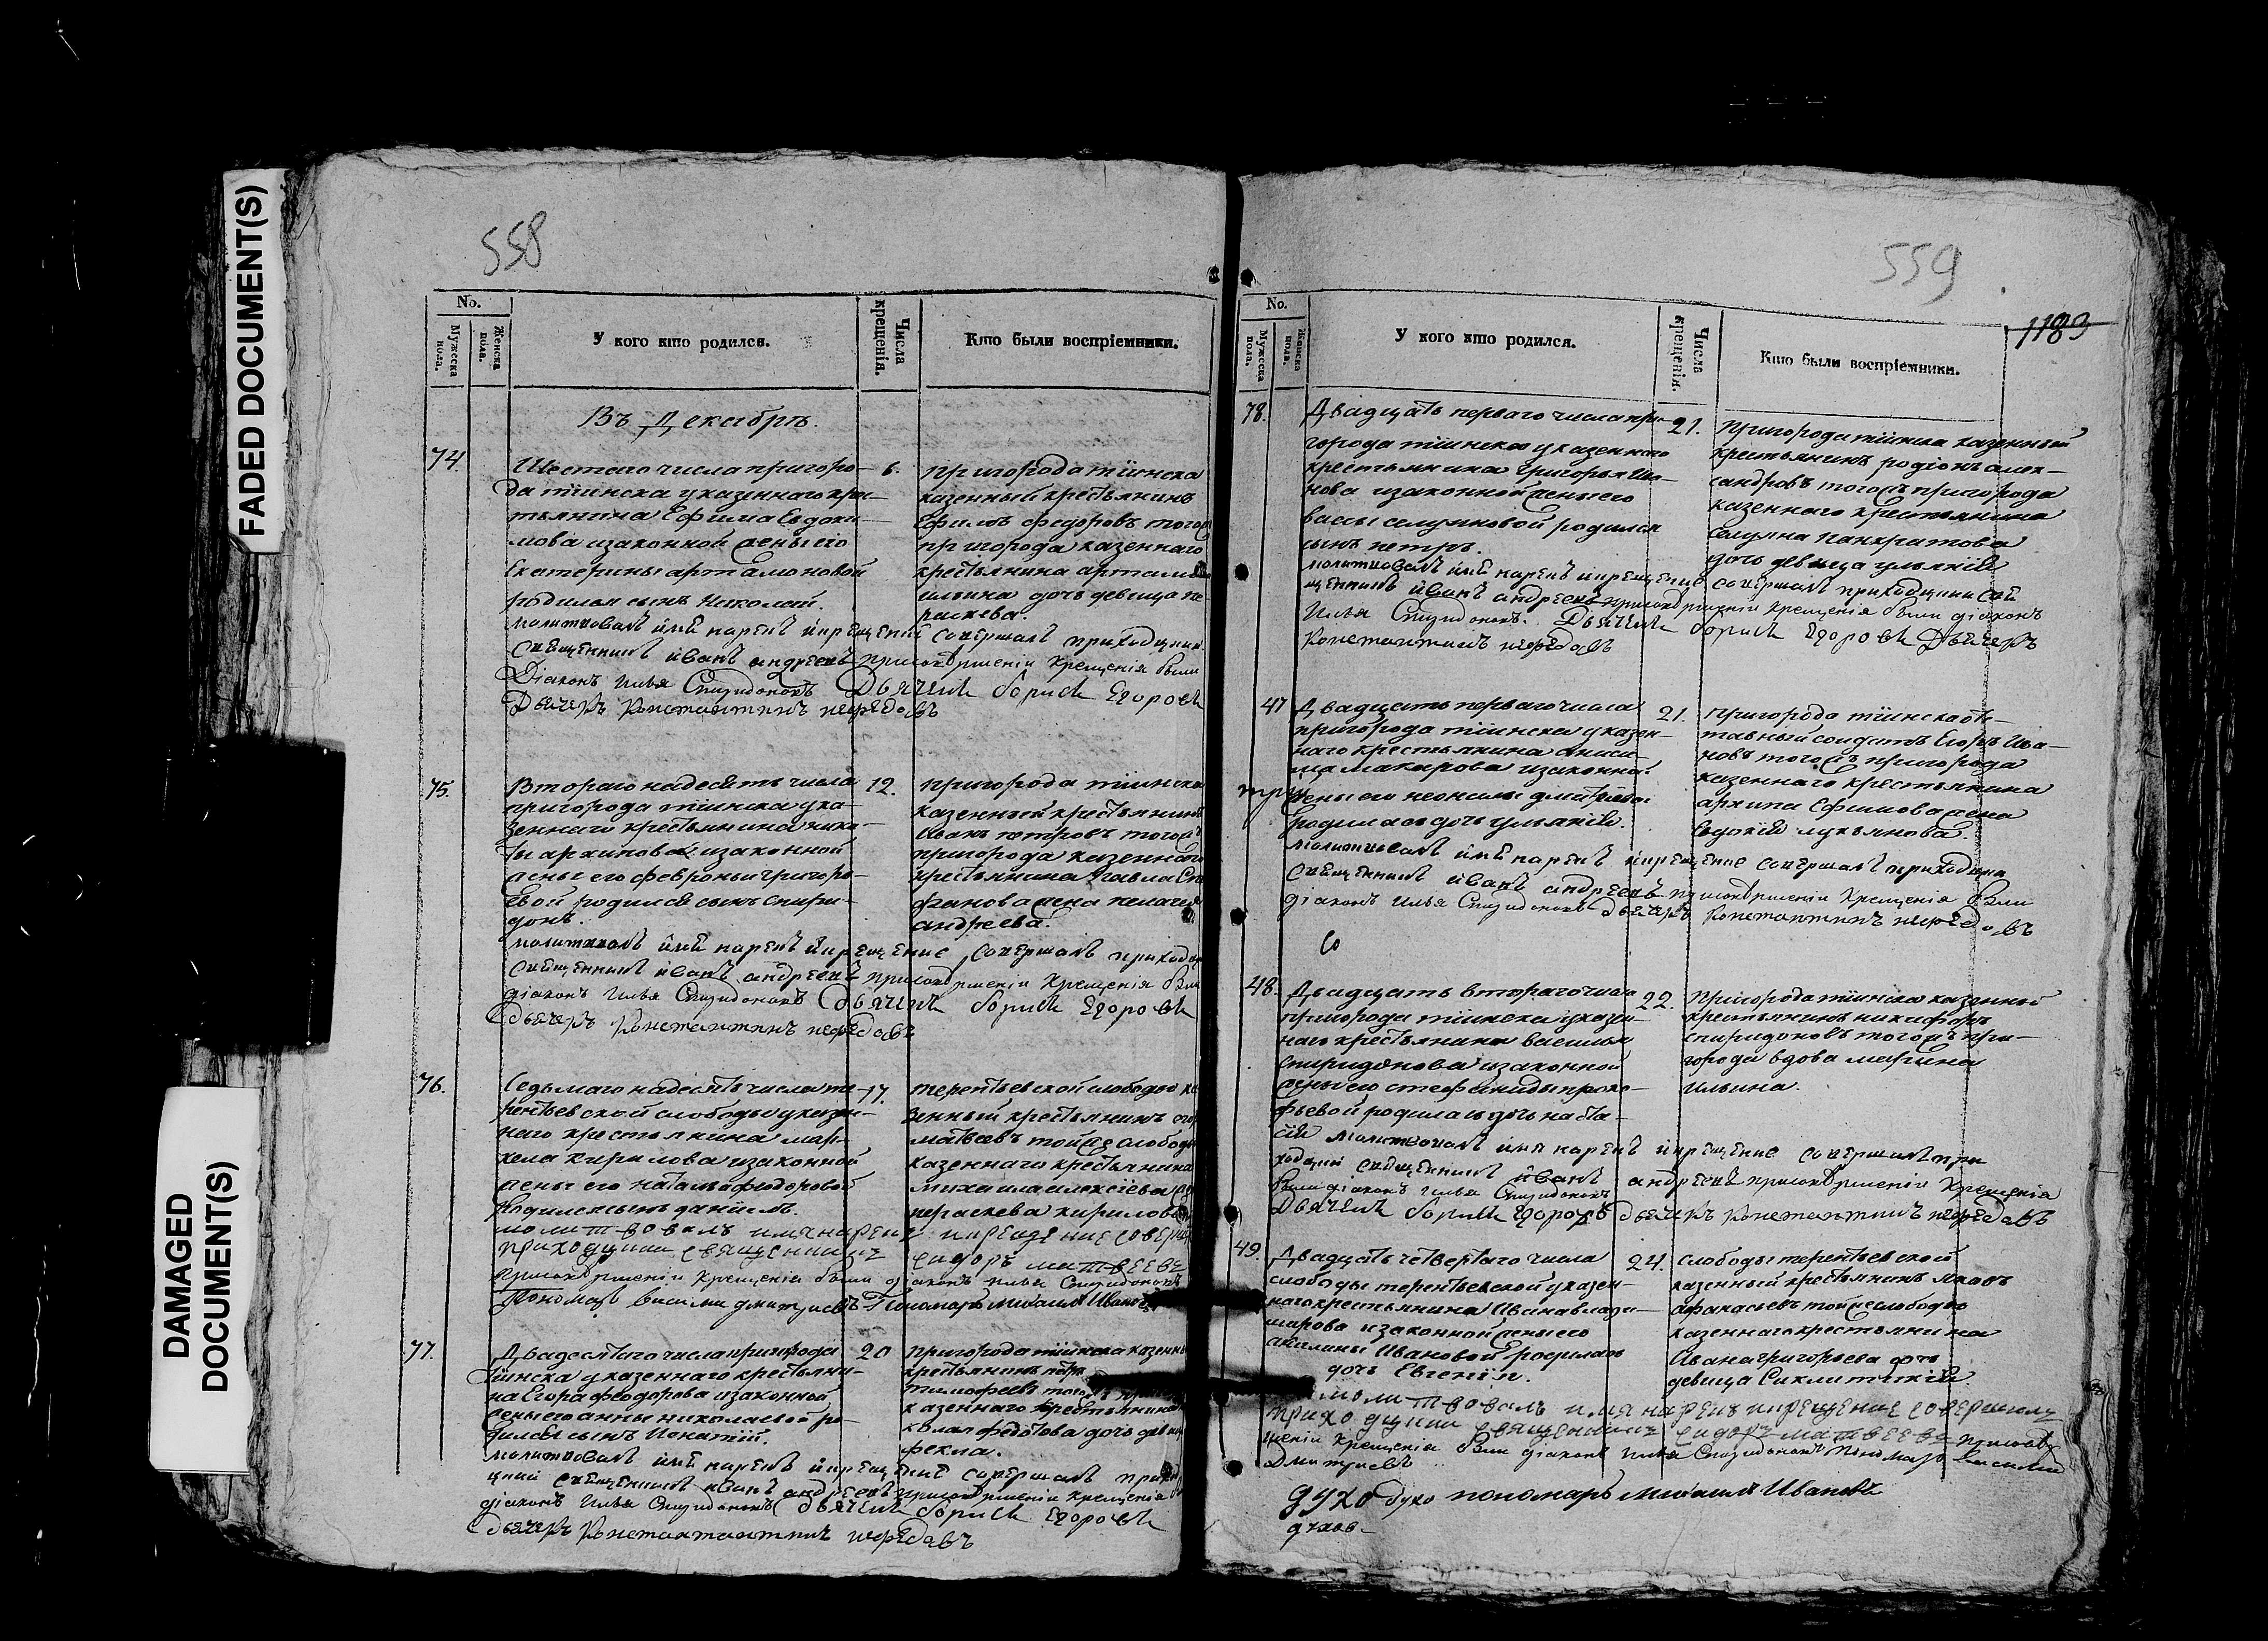 FADED DOCUMENT(S)
DAMAGED
DOCUMENT(S)
558
No.
Мужеска пола.
Женска пола.
У кого кто родился.
Числа крещенія.
Кто были воспріемники.
Въ Декабрѣ.
74.
Шестаго числа пригоро-
да тіинска у казеннаго кре-
стьянина Ефима Евдоки-
мова изаконной жены его
Екатерины артамоновой
родился сынъ Николай.
6.
пригорода тіинска
казенный крестьянинъ
Ефимъ федоровъ тогож
пригорода казеннаго
крестьянина
ильина дочь девица пе-
раскева.
молитвовалъ имя нарекъ и крещение совершалъ приходцкий
священникъ иванъ андреевъ присовершении крещения были
Діаконъ Илья Спиридоновъ Дьячекъ борисъ Егоровъ
Дьячекъ Константинъ нефедовъ
75.
Второго надесять числа
пригорода тиинска у ка-
зеннаго крестьянина ники-
ты архипова изаконной
жены его февроньи григорь-
евой родился сынъ спири-
донъ.
12.
пригорода тіинска
казенный крестьянинъ
Иванъ петровъ тогож
пригорода казеннаго
крестьянина Павла Сте-
фанова жена пелагея
андреева.
молитвовалъ имя нарекъ и крещение совершалъ приходц
священникъ иванъ андреевъ присовершении крещения были
діаконъ Илья Спиридоновъ дьячекъ борисъ Егоровъ
дьячекъ Константинъ нефедовъ
76.
Седьмаго надесять числа те-
рентьевской слободы у казен-
наго крестьянина мар-
кела кирилова изаконной
жены его натальи федоровой
родился сынъ даниилъ.
17.
терентьевской слободы ка
зенный крестьянинъ
матвеевъ тойже слободы
казеннаго крестьянина
михаила алексіева
пераскева кирилова
молитвовалъ имя нарекъ и крещение соверш
приходцкии священникъ сидоръ матвеевъ
присовершении крещения были діаконъ Илья Спиридоновъ
Пономарь василии дмитриевъ Пономарь Михаилъ Ивановъ
77.
Двадесятаго числа пригорода
Тіинска у казеннаго крестьяни-
на Егора федорова изаконной
жены его анны николаевой ро-
дился сынъ Игнатій.
20
пригорода тіинска казенны
крестьянинъ
тимофеевъ тогожъ
казеннаго крестьянина
федотова дочь девица
фекла.
молитвовалъ имя нарекъ и крещение совершалъ приход
цкий священникъ иванъ андреевъ присовершении крещения
діаконъ Илья Спиридоновъ дьячекъ борисъ Егоровъ
дьячекъ Константинъ нефедовъ
559
1183
No.
Мужеска пола.
Женска пола.
У кого кто родился.
Числа крещенія.
Кто были воспріемники.
78.
Двадцать перваго числа при-
города тіинска у казеннаго
крестьянина григорья Ива-
нова изаконной жены его
васы селуяновой родился
сынъ петръ.
21.
пригорода тіинска казенный
крестьянинъ родіонъ алек-
сандровъ тогожъ пригорода
казеннаго крестьянина
Селуяна панкратова
дочь девица ульяния
молитвовалъ имя нарекъ и крещение совершалъ приходцкии свя
щенникъ иванъ андреевъ присовершении крещения были діаконъ
Илья Спиридоновъ. Дьячекъ борисъ Егоровъ Дьячекъ
Константинъ нефедовъ
47
Двадцать перваго числа
пригорода тіинска у казен-
наго крестьянина аниси-
ма макарова изаконной
жены его неонилы дмитріевой
родилась дочь ульяния.
21.
пригорода тіинска от-
тавный солдатъ Егоръ Ива-
новъ тогожъ пригорода
казеннаго крестьянина
архипа Ефимова жена
Евдокия лукьянова.
молитвовалъ имя нарекъ и крещение совершалъ приходцки
священникъ иванъ андреевъ присовершении крещения были
діаконъ Илья Спиридоновъ дьячекъ Константинъ нефедовъ
48.
Двадцать втораго числа
пригорода тіинска у казен
наго крестьянина василья
Спиридонова изаконной
жены его стефаниды проко-
фьевой родилась дочь наста-
сия
22.
пригорода тіинска казенный
крестьянинъ никифоръ
спиридоновъ тогожъ при-
города вдова марина
ильина.
молитвовалъ имя нарекъ и крещение совершалъ при
ходцкий священникъ иванъ андреевъ присовершении крещения
были діаконъ Илья Спиридоновъ
Дьячекъ борисъ Егоровъ дьячекъ Константинъ нефедовъ
49.
Двадцать четвертаго числа
слободы терентьевской у казен-
наго крестьянина Ивана влади-
мирова изаконной жены его
акилины Ивановой родилась
дочь Евгения.
24.
слободы терентьевской
казенный крестьянинъ яковъ
афанасьевъ тойже слободы
казеннаго крестьянина
Ивана григорьева дочь
девица Синклитикия.
молитвовалъ имя нарекъ и крещение совершилъ
приходцкии священникъ сидоръ матвеевъ присовер
шении крещения были діаконъ Илья Спиридоновъ Пономарь василии
Дмитриевъ
духо духо пономарь Михаилъ Ивановъ
духов-